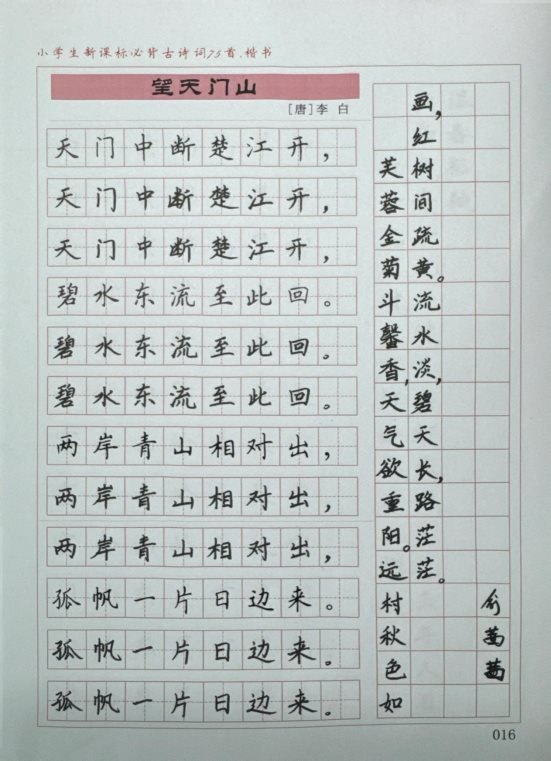 小学生新课标必背古诗词75首.楷书
望天门山
[唐]李白
天门中断楚江开，
天门中断楚江开，
天门中断楚江开，
碧水东流至此回。
碧水东流至此回。
碧水东流至此回。
两岸青山相对出，
两岸青山相对出，
两岸青山相对出，
孤帆一片日边来。
孤帆一片日边来。
孤帆一片日边来。
芙蓉金菊斗馨香，天气欲重阳。远村秋色如
画，红树间疏黄。流水淡，碧天长，路茫茫。
俞茜茜
016